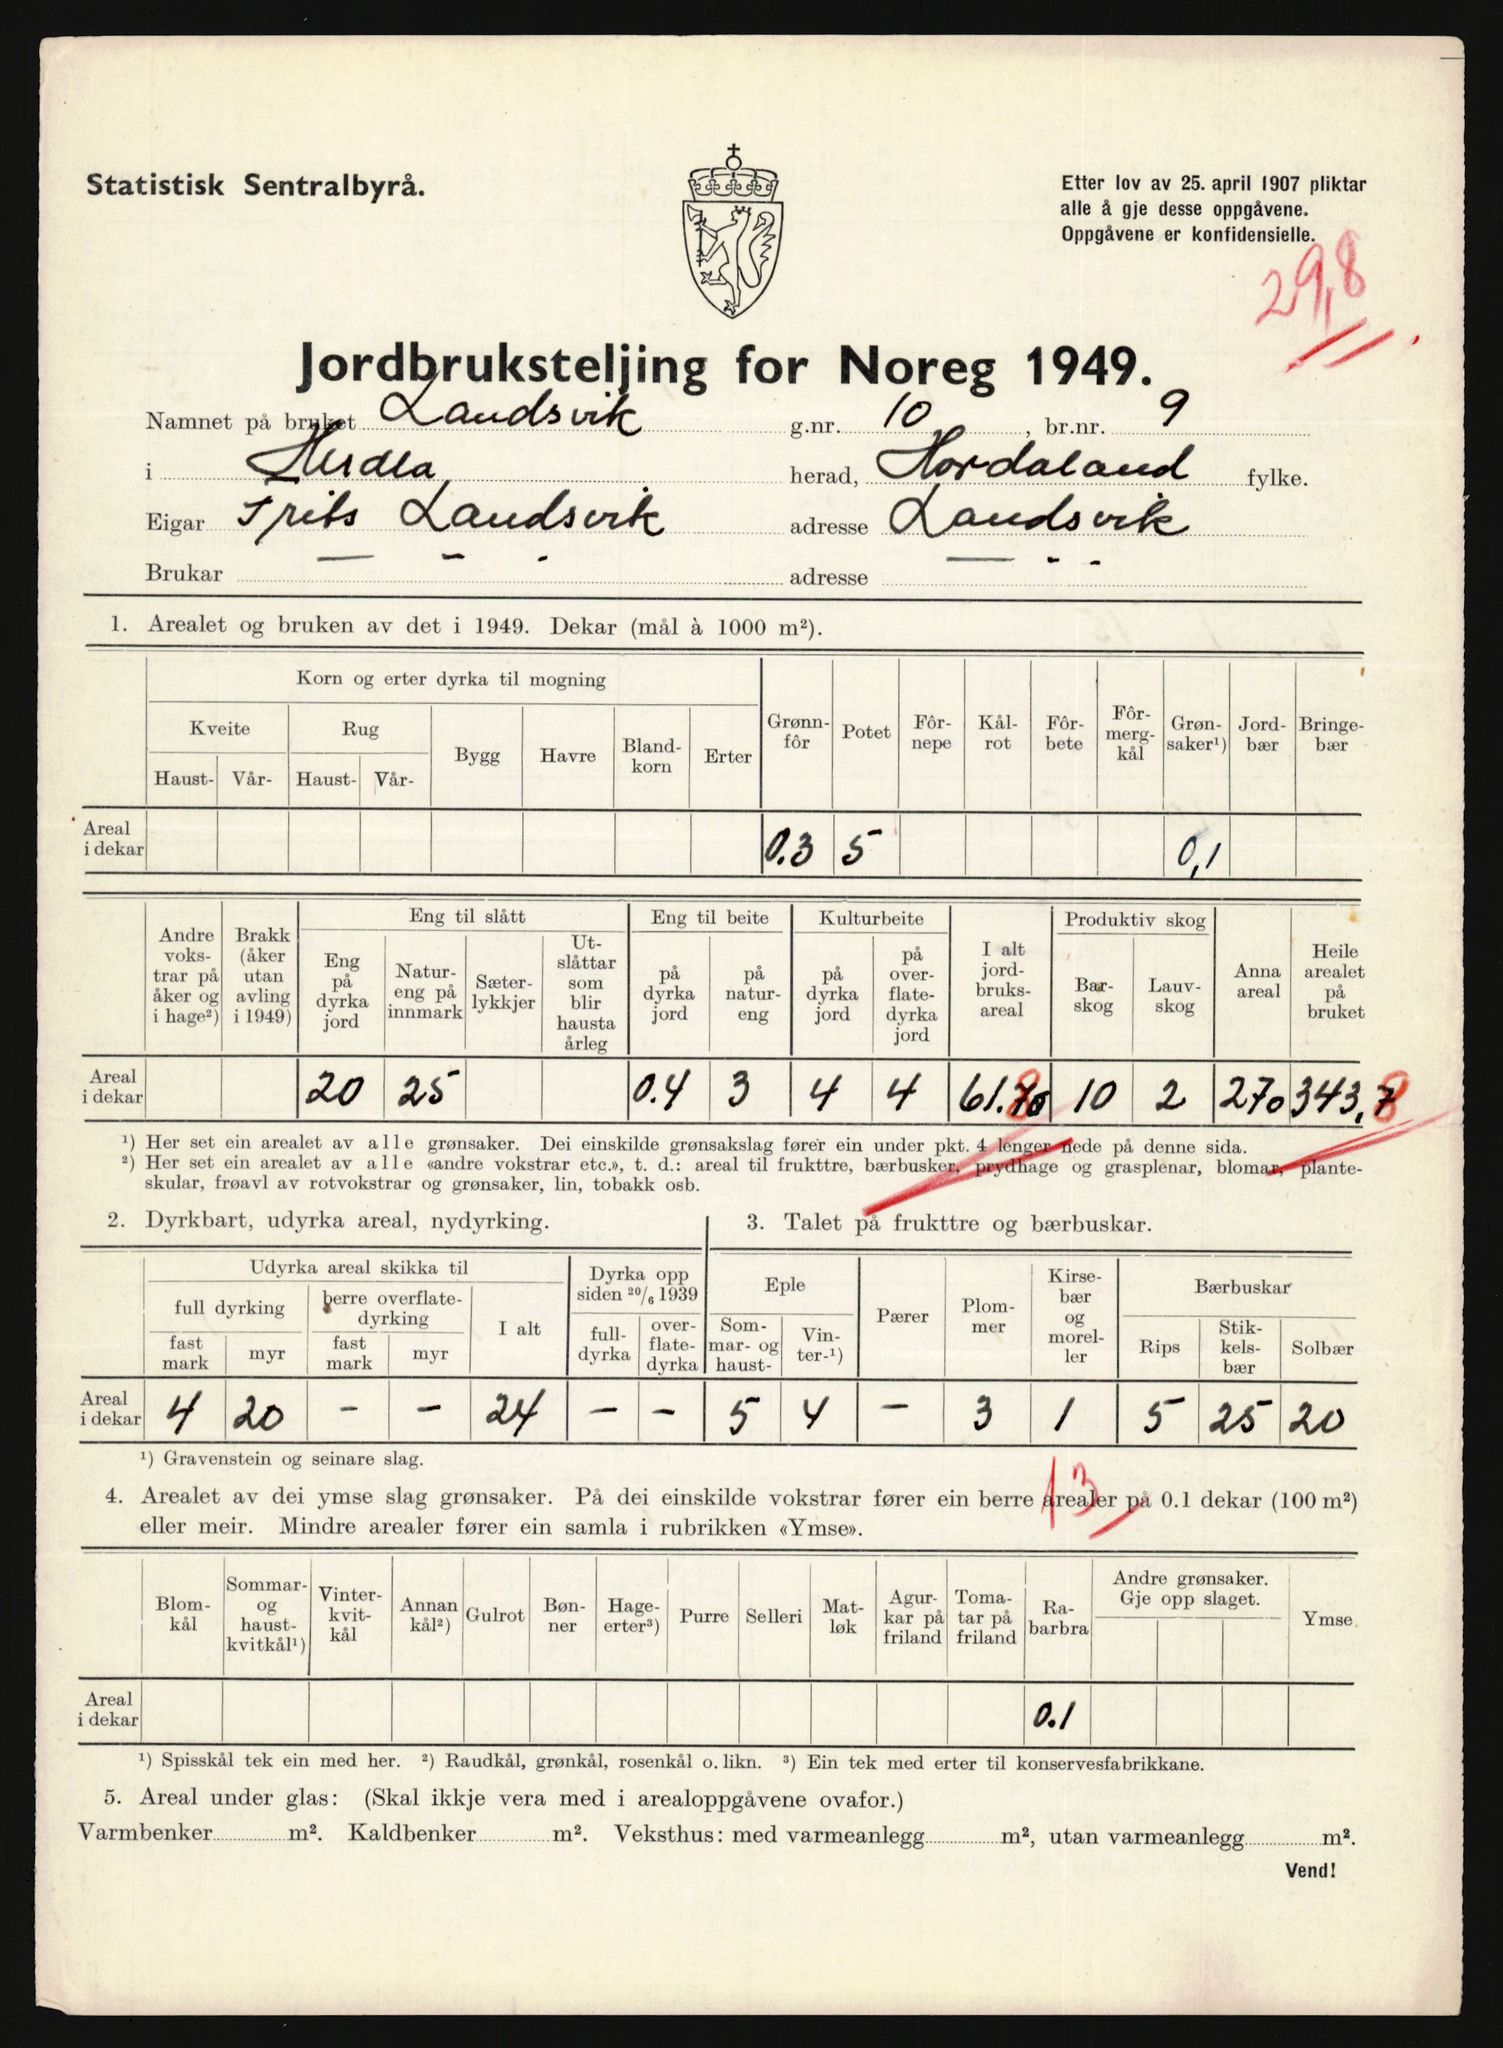 Statistisk Sentralbyrå.
Etter lov av 25. april 1907 pliktar
alle å gje desse oppgåvene.
Oppgåvene er konfidensielle.
29,8
Jordbruksteljing for Noreg 1949.
Namnet på bruket Landsvik g.nr. 10, br.nr. 9
i Herdla herad, Hordaland fylke.
Eigar Frits Landsvik adresse Landsvik
Brukar — - . adresse — - -
1. Arealet og bruken av det i 1949. Dekar (mål à 1000 m²).
Korn og erter dyrka til mogning
Kveite Rug Bygg Havre Bland-korn Erter Grønn-fôr Potet Fôr-nepe Kål-rot Fôr-bete Fôr-merg-kål Grøn-saker¹) Jord-bær Bringe-bær
Haust- Vår- Haust- Vår-
Areal i dekar 0.3 5 0,1
Andre voks-trar på åker og i hage²) Brakk (åker utan avling i 1949) Eng til slått Eng til beite Kulturbeite I alt jord-bruks-areal Produktiv skog Anna areal Heile arealet på bruket
Eng på dyrka jord Natur-eng på innmark Sæter-lykkjer Ut-slåttar som blir hausta årleg på dyrka jord på natur-eng på dyrka jord på over-flate-dyrka jord Bar-skog Lauv-skog
Areal i dekar 20 25 0.4 3 4 4 61.8 10 2 270 343,7 8
¹) Her set ein arealet av alle grønsaker. Dei einskilde grønsakslag fører ein under pkt. 4 lenger nede på denne sida.
²) Her set ein arealet av alle «andre vokstrar etc.», t. d.: areal til frukttre, bærbusker, prydhage og grasplenar, blomar, plante-
skular, frøavl av rotvokstrar og grønsaker, lin, tobakk osb.
2. Dyrkbart, udyrka areal, nydyrking.
3. Talet på frukttre og bærbuskar.
Udyrka areal skikka til Dyrka opp siden 20/6 1939 Eple Pærer Plom-mer Kirse-bær og morel-ler Bærbuskar
full dyrking berre overflate-dyrking I alt full-dyrka over-flate-dyrka Som-mar- og haust- Vin-ter-¹) Rips Stik-kels-bær Solbær
fast mark myr fast mark myr
Areal i dekar 4 20 - - 24 - - 5 4 - 3 1 5 25 20
¹) Gravenstein og seinare slag.
13
4. Arealet av dei ymse slag grønsaker. På dei einskilde vokstrar fører ein berre arealer på 0.1 dekar (100 m²)
eller meir. Mindre arealer fører ein samla i rubrikken «Ymse».
Blom-kål Sommar- og haust-kvitkål¹) Vinter-kvit-kål Annan kål²) Gulrot Bøn-ner Hage-erter³) Purre Selleri Mat-løk Agur-kar på friland Toma-tar på friland Ra-barbra Andre grønsaker. Gje opp slaget. Ymse
Areal i dekar 0.1
¹) Spisskål tek ein med her. ²) Raudkål, grønkål, rosenkål o. likn. ³) Ein tek med erter til konservesfabrikkane.
5. Areal under glas: (Skal ikkje vera med i arealoppgåvene ovafor.)
Varmbenker m². Kaldbenker m². Veksthus: med varmeanlegg m², utan varmeanlegg m².
Vend!